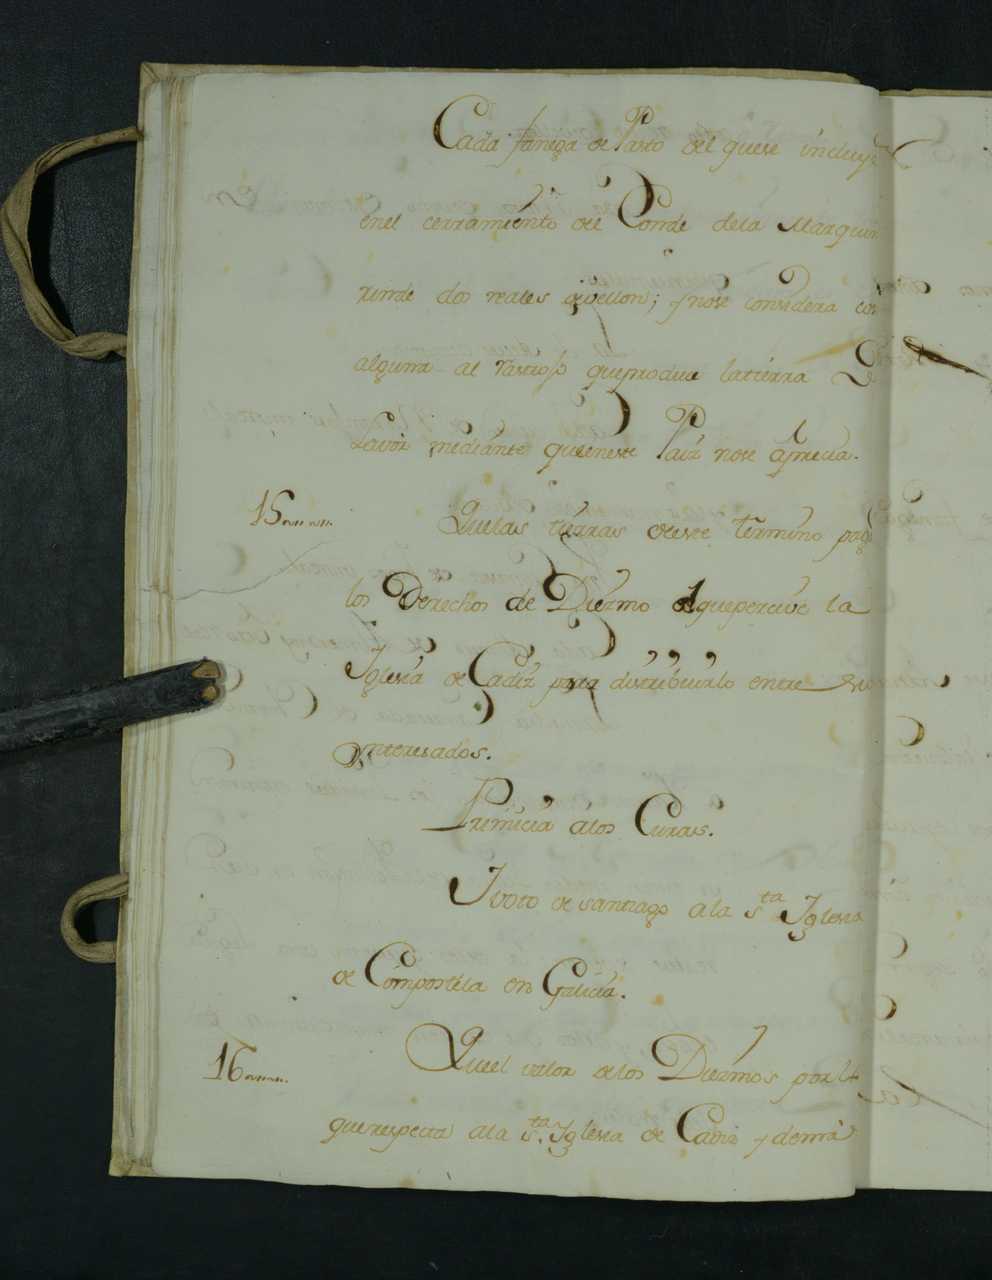 Cada fanega de Pasto del quese incluye
enel cerramiento del Conde dela Marquin
rinde dos reales de vellon; y nose considera
alguna al rastrojo queproduce latierra de
Lavor mediante queeneste Pais nose aprecia.
15 Quelas tierras deeste termino
los Derechos de Diezmo elquepercive la
Iglesia de Cadiz para distribuirlo entre
Ynteresados.
Primicia álos Curas.
I voto de Santiago ala Sta. Iglesia
de Compostela en Galicia.
16 Queel valor delos Diezmos por lo
querespecta ala Sta. Iglesia de Cadiz y demas